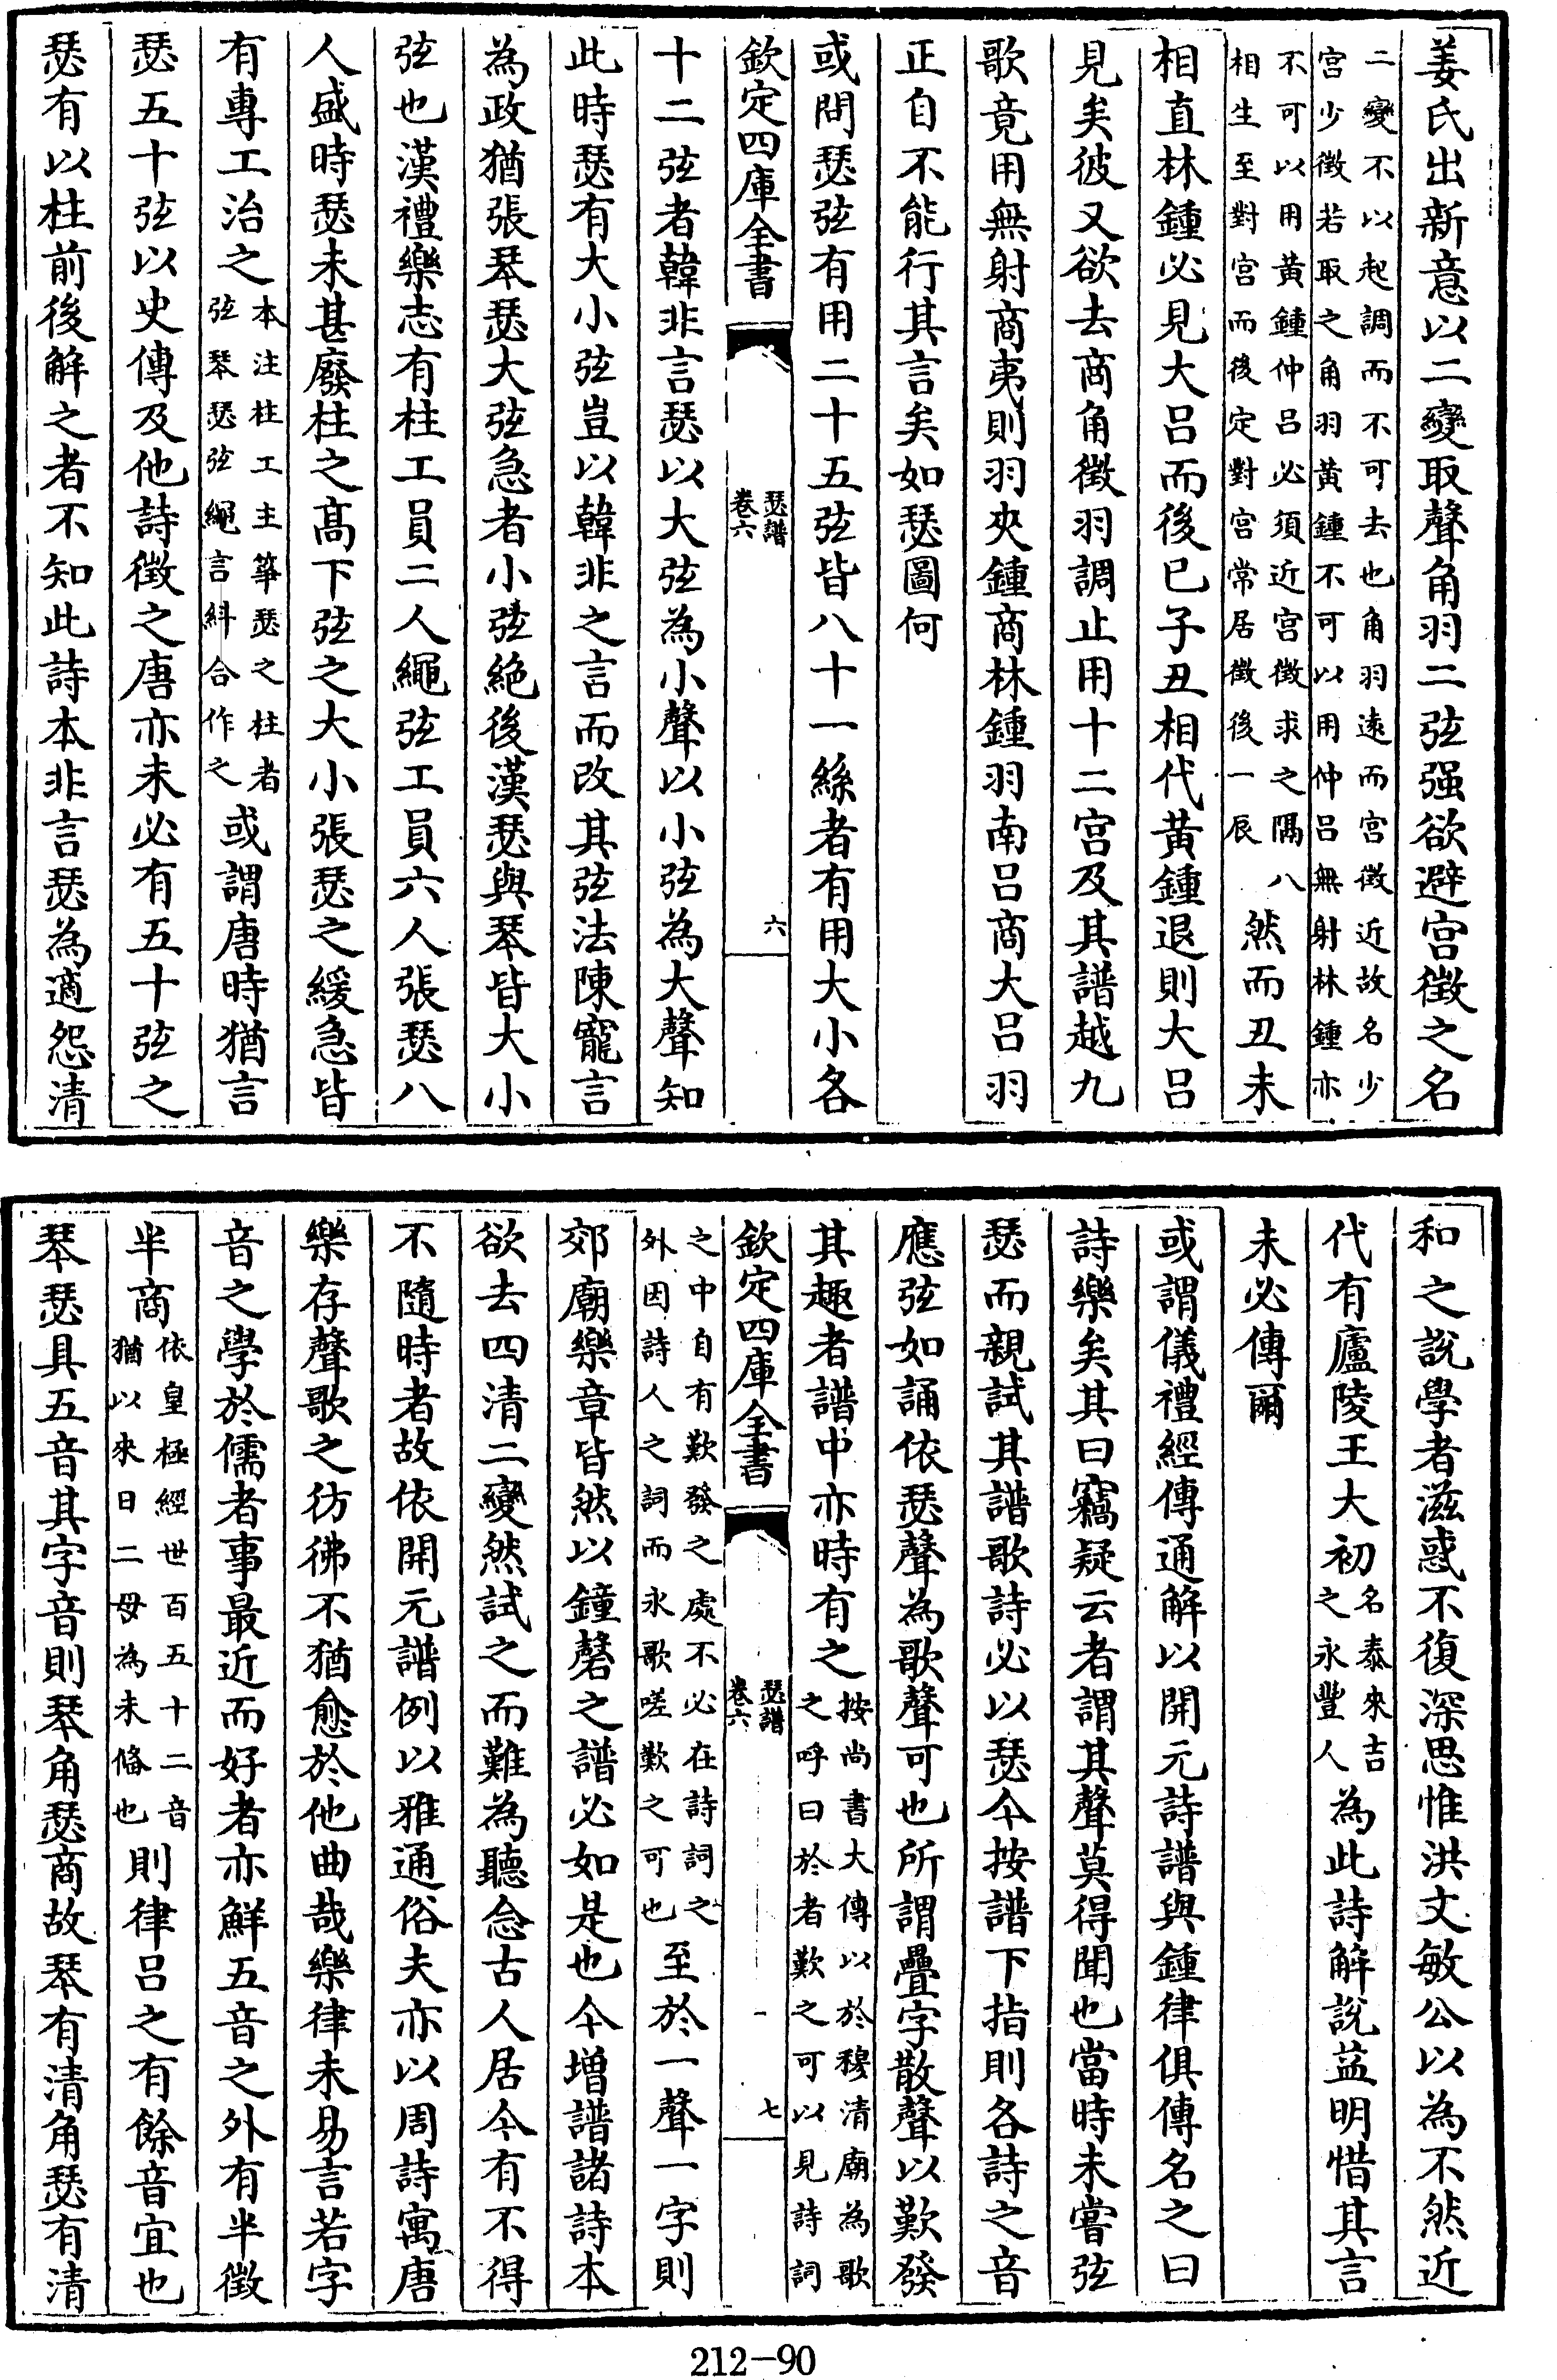 姜氏出新意以二變取聲角羽二弦强欲避宫徵之名
二變不以起調而不可去也角羽遠而宫徵近故名少
宫少徵若取之角羽黃鍾不可以用仲呂無射林鍾亦
不可以用黃鍾仲呂必須近宫徵求之隔八
相生至對宫而後定對宫常居徵後一辰
然而丑未
相直林鍾必見大呂而後已子丑相代黃鍾退則大呂
見矣彼又欲去商角徵羽調止用十二宫及其譜越九
歌竟用無射商夷則羽夾鍾商林鍾羽南呂商大呂羽
正自不能行其言矣如瑟圖何
或問瑟弦有用二十五弦皆八十一絲者有用大小各
欽定四庫全書
瑟譜
卷六
六
十二弦者韓非言瑟以大弦為小聲以小弦為大聲知
此時瑟有大小弦豈以韓非之言而改其弦法陳寵言
為政猶張琴瑟大弦急者小弦絶後漢瑟與琴皆大小
弦也漢禮樂志有柱工員二人繩弦工員六人張瑟八
人盛時瑟未甚廢柱之髙下弦之大小張瑟之緩急皆
有專工治之
本注柱工主箏瑟之柱者
弦琴瑟弦繩言糾合作之
或謂唐時猶言
瑟五十弦以史傳及他詩徵之唐亦未必有五十弦之
瑟有以柱前後解之者不知此詩本非言瑟為適怨清
和之說學者滋惑不復深思惟洪文敏公以為不然近
代有廬陵王大初
名泰來吉
之永豐人
為此詩解說益明惜其言
未必傳爾
或謂儀禮經傳通解以開元詩譜與鍾律俱傳名之曰
詩樂矣其曰竊疑云者謂其聲莫得聞也當時未嘗弦
瑟而親試其譜歌詩必以瑟今按譜下指則各詩之音
應弦如誦依瑟聲為歌聲可也所謂疊字散聲以歎發
其趣者譜中亦時有之
按尚書大傳以於穆清廟為歌
之呼曰於者歎之可以見詩詞
欽定四庫全書
瑟譜
卷六
七
之中自有歎發之處不必在詩詞之
外因詩人之詞而永歌嗟歎之可也
至於一聲一字則
郊廟樂章皆然以鐘磬之譜必如是也今增譜諸詩本
欲去四清二變然試之而難為聽念古人居今有不得
不隨時者故依開元譜例以雅通俗夫亦以周詩寓唐
樂存聲歌之彷彿不猶愈於他曲哉樂律未易言若字
音之學於儒者事最近而好者亦鮮五音之外有半徵
半商
依皇極經世百五十二音
猶以來日二母為未備也
則律呂之有餘音宜也
琴瑟具五音其字音則琴角瑟商故琴有清角瑟有清
212-90